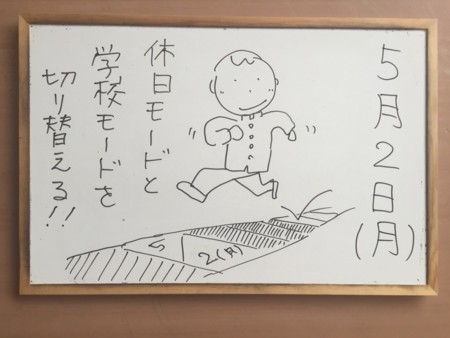 5月2日(月)
休日モードと
学校モードを
切り替える!!
5/2(月)